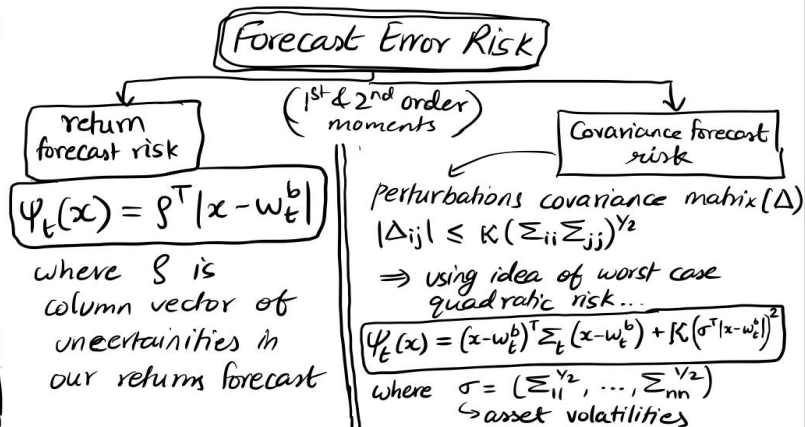 Forecast Error Risk
(1st & 2nd order
moments)
return
forecast risk
ψₜ(x) = ρᵀ|x - wₜᵇ|
where ρ is
column vector of
uncertainities in
our returns forecast
Covariance forecast
risk
perturbations covariance matrix (Δ)
|Δᵢⱼ| ≤ K(Σᵢᵢ Σⱼⱼ)^½
⇒ using idea of worst case
quadratic risk...
ψₜ(x) = (x-wₜᵇ)ᵀ Σₜ (x-wₜᵇ) + K(σᵀ|x-wₜᵇ|)²
where σ = (Σ₁₁^½, ..., Σₙₙ^½)
↳ asset volatilities